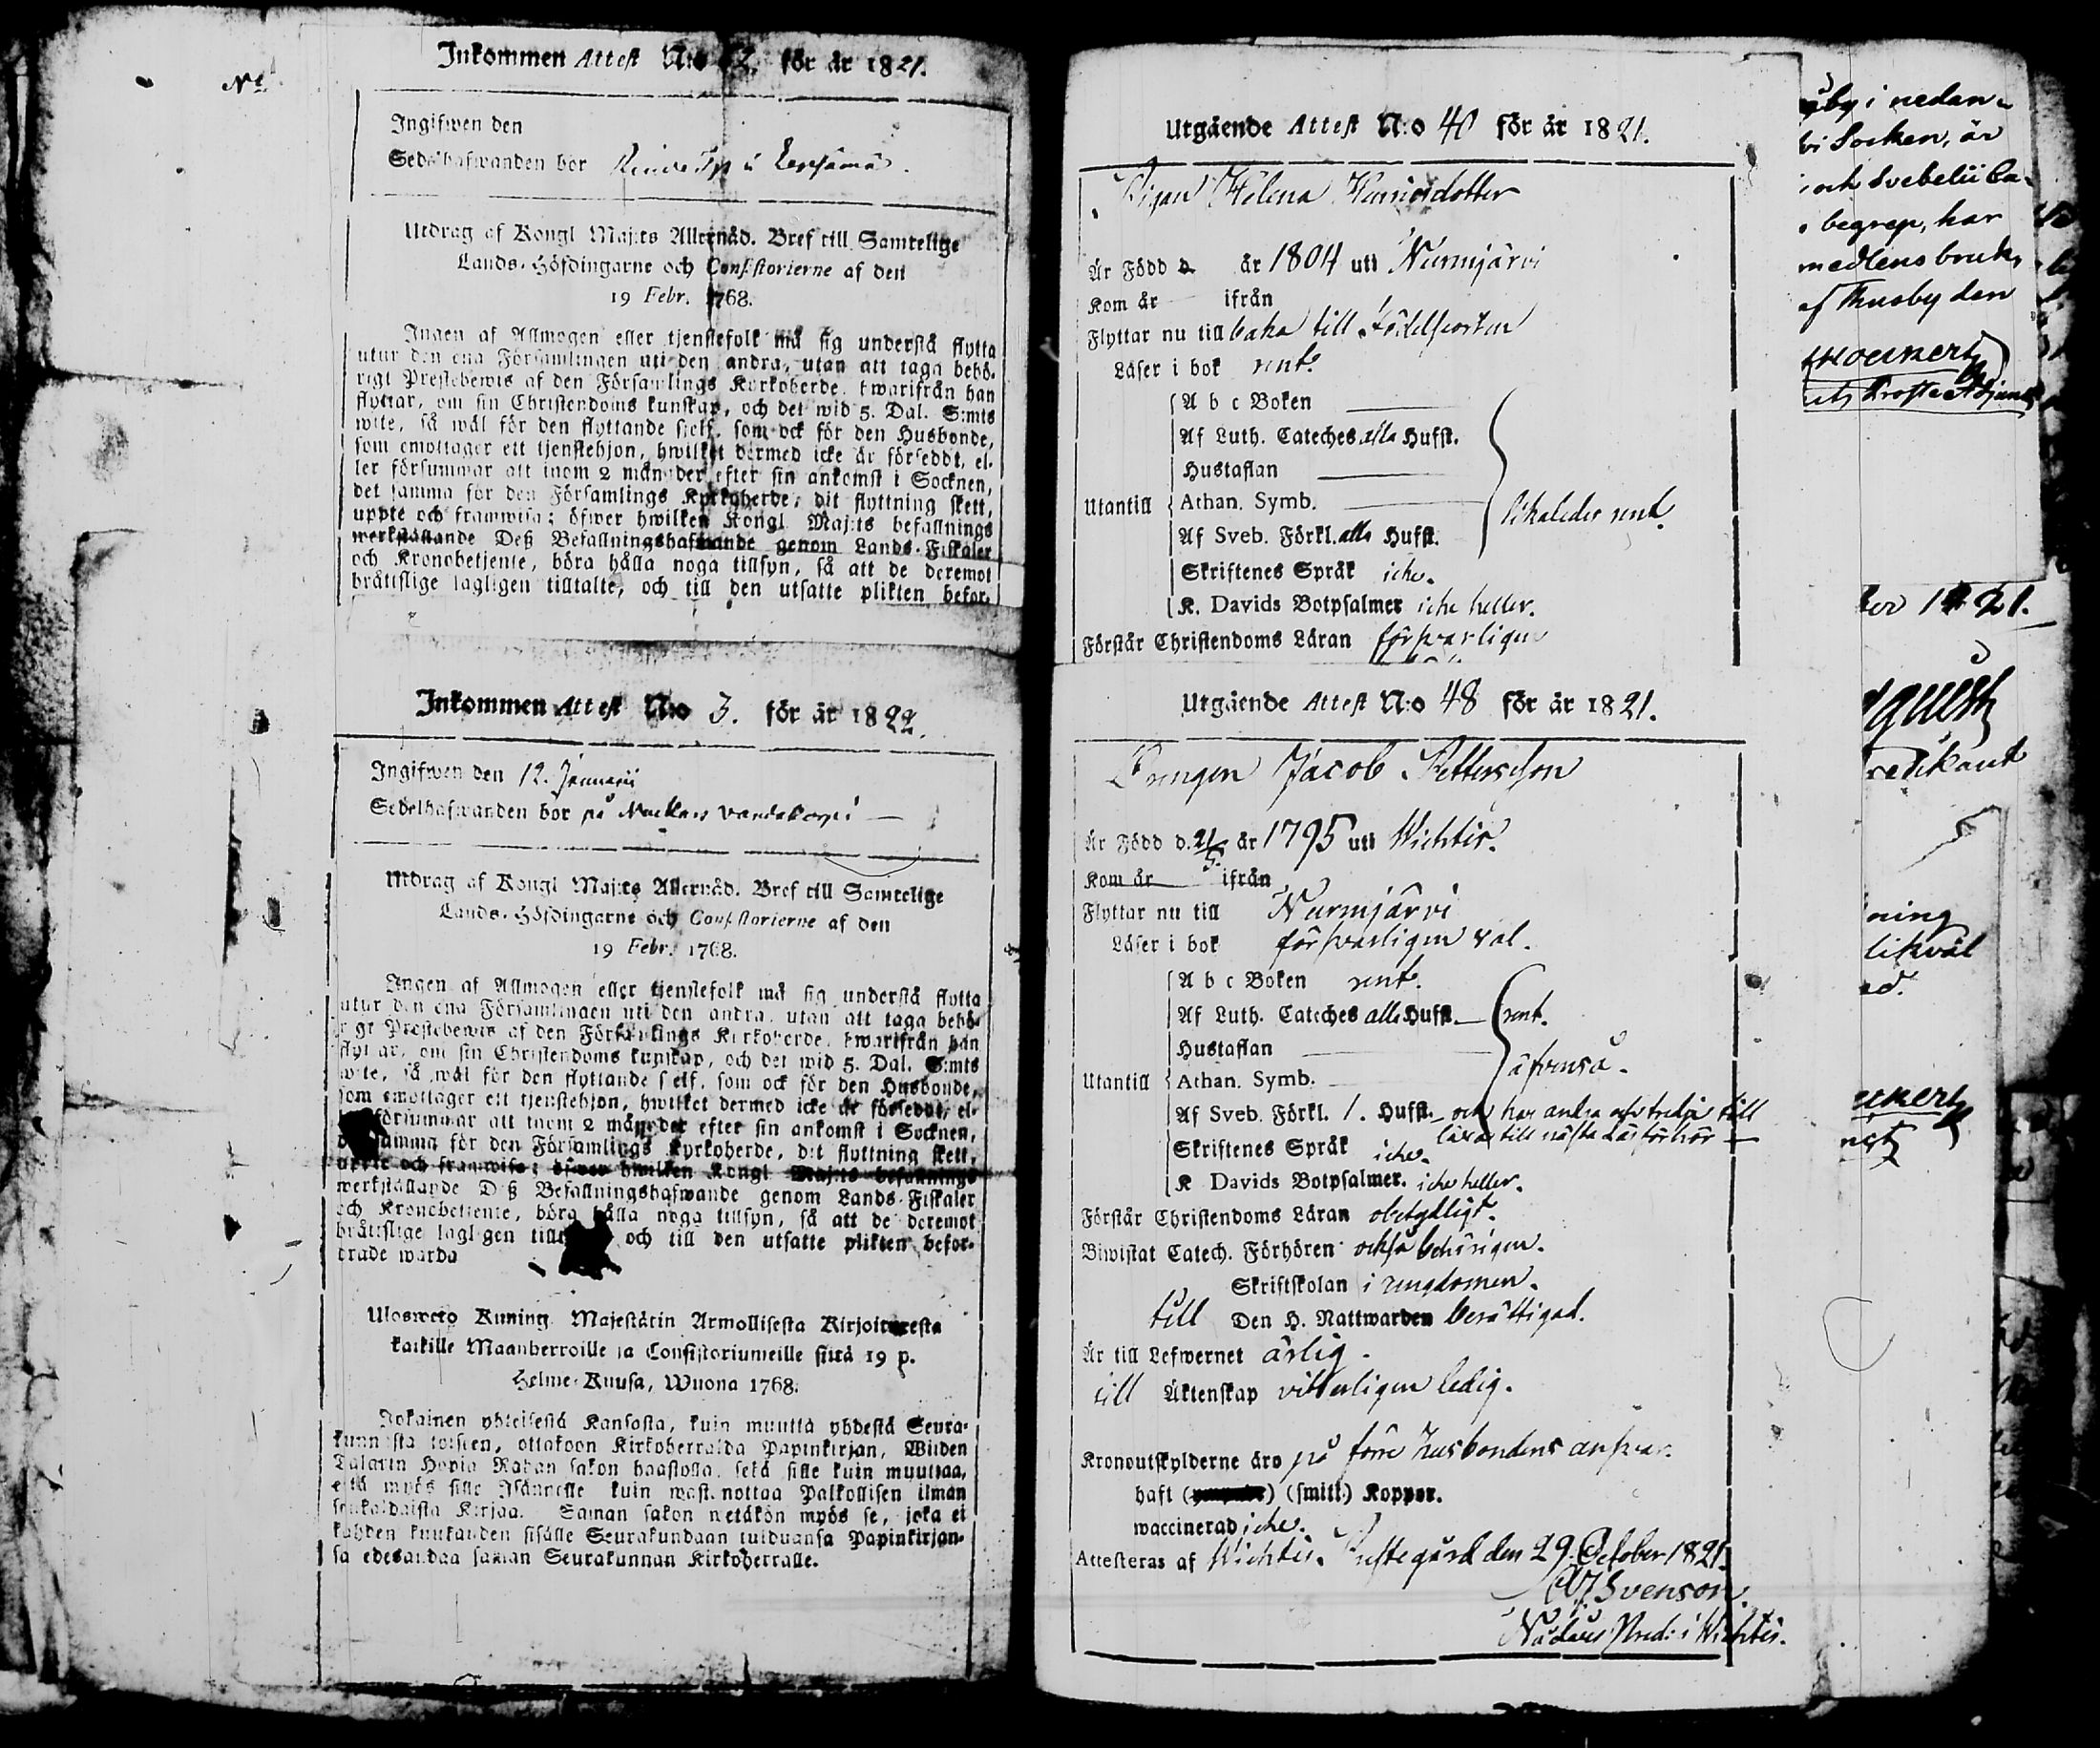 No
Inkommen Attest N:o 2. för år 1821.
Ingifwen den
Sedelhafwanden bor
Utdrag af Kongl Maj:ts Allernåd. Bref till Samtelige
Lands-Höfdingarne och Consistorierne af den
19 Febr. 1768.
Ingen af Allmogen eller tjenstefolk må sig understå flytta
utur den ena Församlingen uti den andra, utan att taga behö-
rigt Prestebewis af den Församlings Kyrkoherde, hwarifrån han
flyttar, om sin Christendoms kunskap, och det wid 5. Dal. S:mts
wite, så wäl för den flyttande sjelf, som ock för den Husbonde,
som emottager ett tjenstehjon, hwilket dermed icke är försedt, el-
ler försummar att inom 2 månader efter sin ankomst i Socknen,
det samma för den Församlings Kyrkoherde, dit flyttning skett,
uppte och framwisa; öfwer hwilken Kongl Maj:ts befallnings
werkställande Deß Befallningshafwande genom Lands-Fiskaler
och Kronobetjente, böra hålla noga tillsyn, så att de deremot
bråttslige lagligen tilltalte, och till den utsatte plikten befor-
Inkommen Attest N:o 3. för år 1822.
Ingifwen den 12. Januarii
Sedelhafwanden bor på
Utdrag af Kongl Maj:ts Allernåd. Bref till Samtelige
Lands-Höfdingarne och Consistorierne af den
19 Febr. 1768.
Ingen af Allmogen eller tjenstefolk må sig understå flytta
utur den ena Församlingen uti den andra, utan att taga behö-
rigt Prestebewis af den Församlings Kyrkoherde, hwarifrån han
flyttar, om sin Christendoms kunskap, och det wid 5. Dal. S:mts
wite, så wäl för den flyttande sjelf, som ock för den Husbonde,
som emottager ett tjenstehjon, hwilket dermed icke är försedt, el-
försummar att inom 2 månader efter sin ankomst i Socknen,
samma för den Församlings Kyrkoherde, dit flyttning skett,
uppte och framwisa; öfwer hwilken Kongl Maj:ts befallnings
werkställande Deß Befallningshafwande genom Lands-Fiskaler
och Kronobetjente, böra hålla noga tillsyn, så att de deremot
bråttslige lagligen och till den utsatte plikten befor-
drade warda
Ulosweto Kuning. Majestätin Armollisesta Kirjoituxesta
kaikille Maanherroille ja Consistoriumeille siitä 19 p.
Helme-Kuusa, Wuona 1768.
Jokainen yhteisestä Kansasta, kuin muutta yhdestä Seura-
kunnasta toiseen, ottakoon Kirkoherralda Papinkirjan, Wiiden
Talarin Hopia Rahan sakon haastolla, sekä sille kuin muuttaa,
että myös sille Isännelle kuin wast.nottaa Palkollisen ilman
senkaldaista Kirjaa. Saman sakon wetäkön myös se, joka ei
kahden kuukauden sisälle Seurakundaan tulduansa Papinkirjan-
sa edesandaa saman Seurakunnan Kirkoherralle.
Utgående Attest N:o 40 för år 1821.
Pigan Helena Henricsdotter
Är Född d. år 1804 uti Nurmijärvi
Kom år ifrån
Flyttar nu till baka till Födelseorten
Läser i bok rent.
A b c Boken
Af Luth. Cateches alla Hufst.
Hustaflan
Utantill Athan. Symb. likaledes rent.
Af Sveb. Förkl. alla Hufst.
Skriftenes Språk icke.
K. Davids Botpsalmer icke heller.
Förstår Christendoms Läran försvarligen
Utgående Attest N:o 48 för år 1821.
Drengen Jacob Pettersson
Är Född d. 21/5. år 1795 uti Wichtis.
Kom år ifrån
Flyttar nu till Nurmijärvi
Läser i bok försvarligen väl.
A b c Boken rent.
Af Luth. Cateches alla Hufst. rent.
Hustaflan
Utantill Athan. Symb. äfvenså.
Af Sveb. Förkl. 1. Hufst. och har andra och tredje till
läxa till nästa Läsförhör
Skriftenes Språk icke.
K Davids Botpsalmer. icke heller.
Förstår Christendoms Läran obetydligt.
Biwistat Catech. Förhören också behörigen.
Skriftskolan i ungdomen.
till Den H. Nattwarden berättigad.
Är till Lefwernet ärlig.
till Äktenskap vitterligen ledig.
Kronoutskylderne äro på förre husbondens ansvar.
haft (smitt.) Koppor.
waccinerad icke.
Attesteras af Wichtis Prestegård den 29 October 1821.
Svenson.
Nådårs Pred: i Wichtis.
i nedan-
Socken, är
och Svebelii Ca-
begrep, har
medlens bruk,
af Thusby den
1821.
ning
likväl